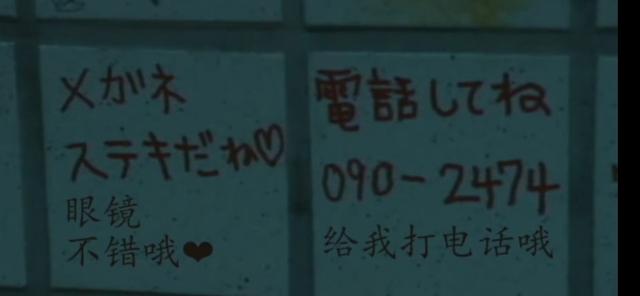 メガネ
ステキだね♡
眼镜
不错哦❤
電話してね
090-2474
给我打电话哦